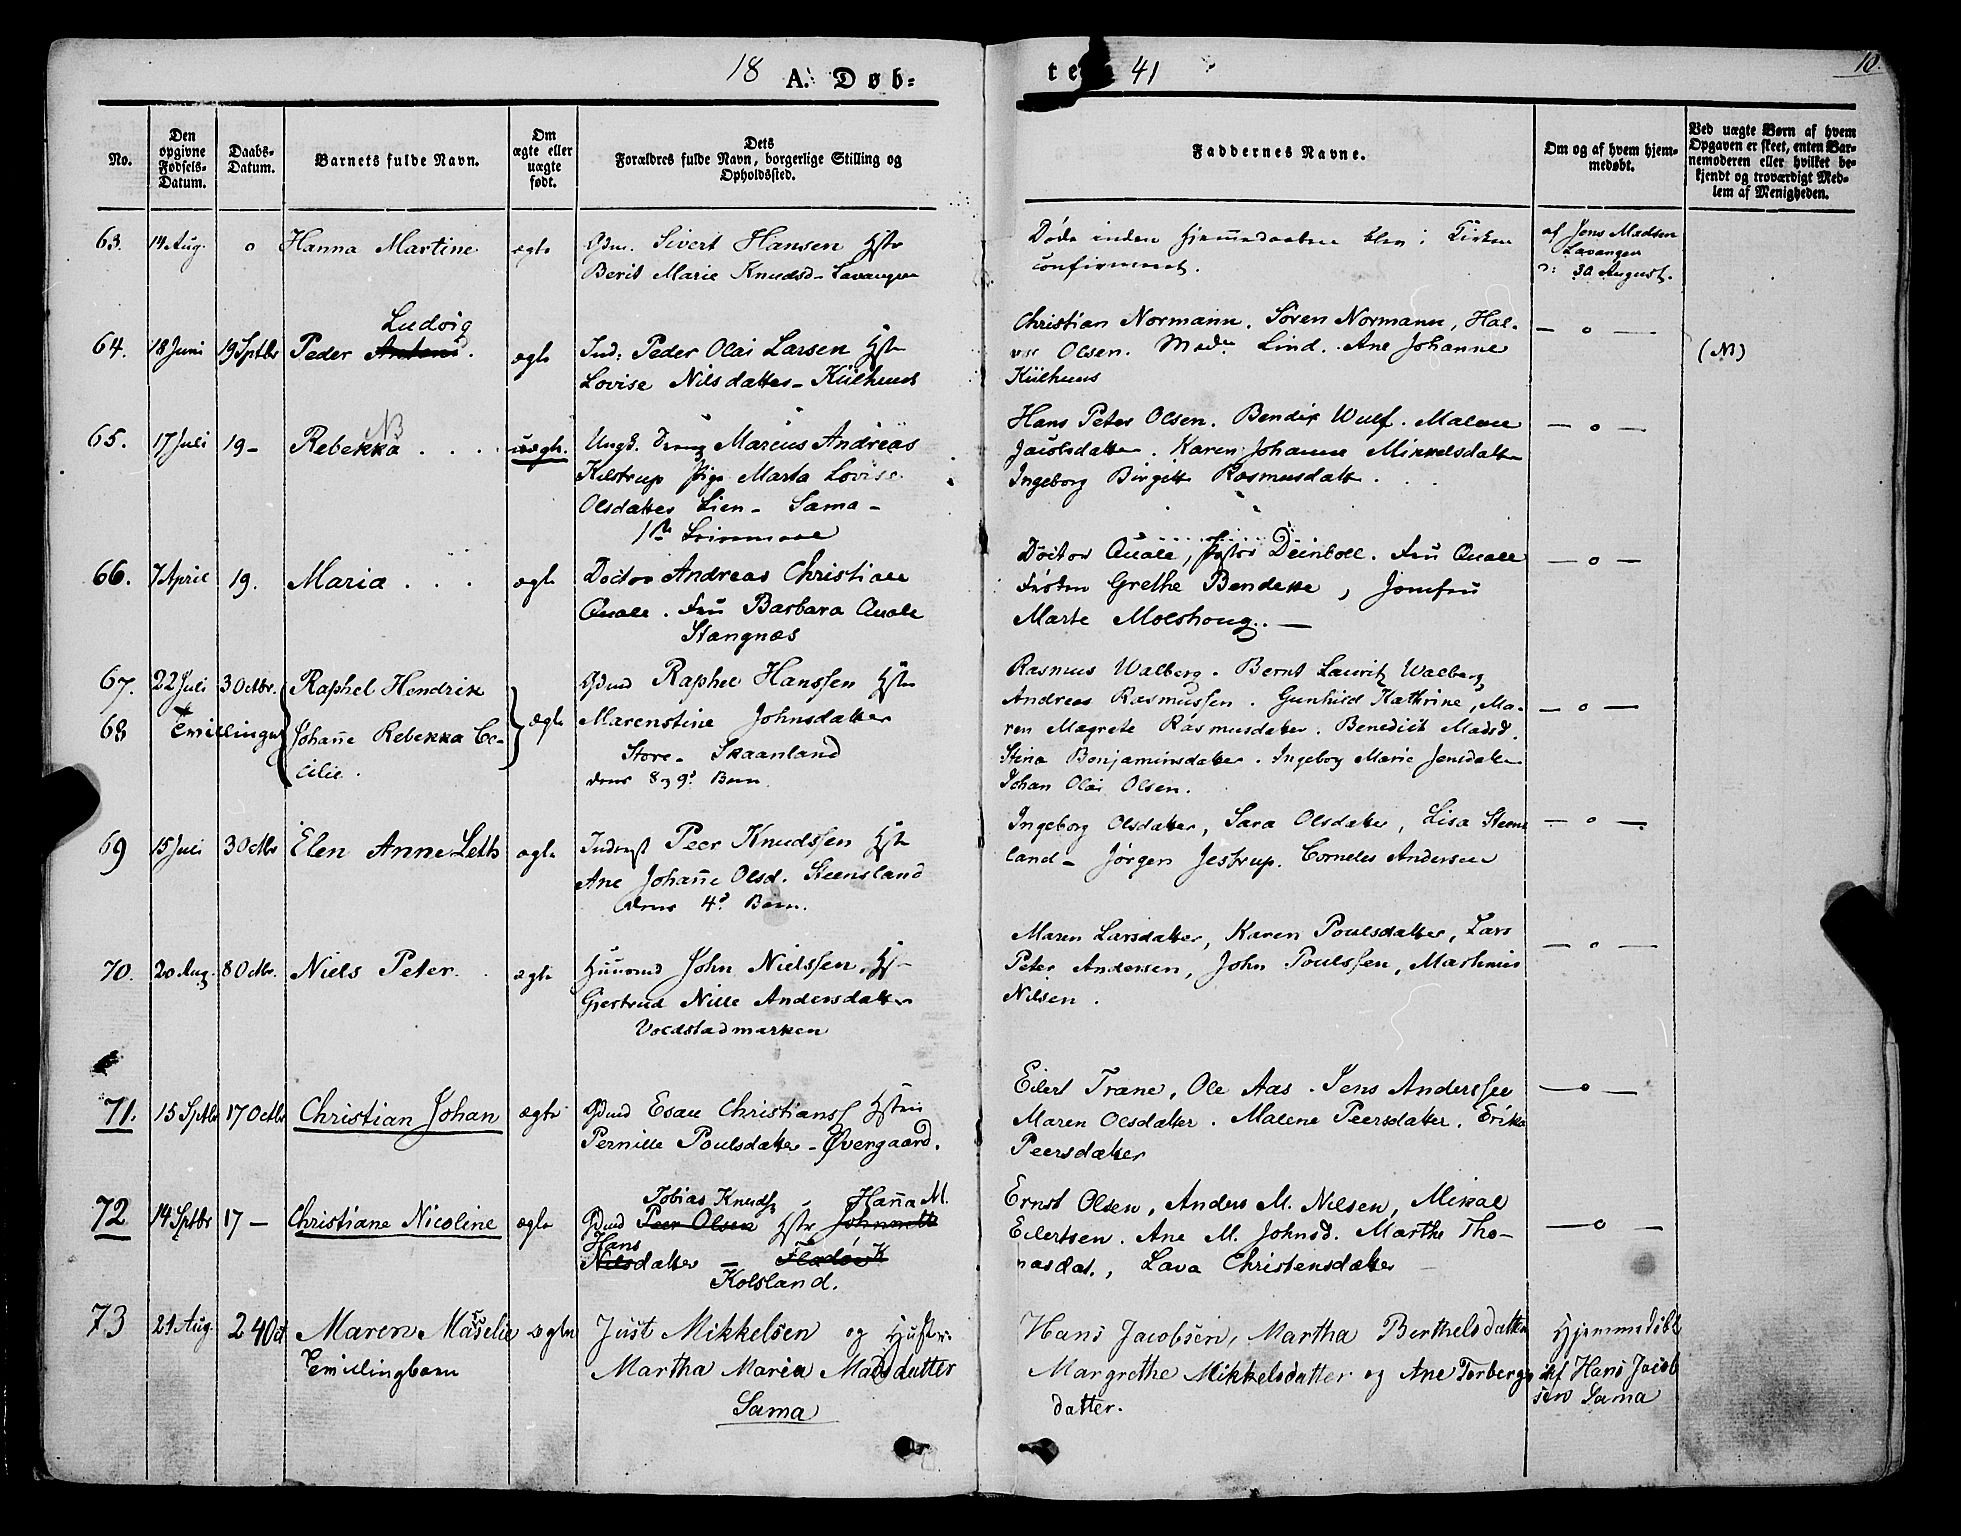 18 A. Døb=
te 41
10.
No.
Den opgivne Fødsels-Datum.
Daabs-Datum.
Barnets fulde Navn.
Om ægte eller uægte født.
Dets
Forældres fulde Navn, borgerlige Stilling og
Opholdssted.
Faddernes Navne.
Om og af hvem hjem-
medøbt.
Ved uægte Børn af hvem
Opgaven er skeet, enten Bar-
nemoderen eller hvilket be-
kjendt og troværdigt Med-
lem af Menigheden.
63. 14 Aug. o Hanna Martine ægte
Gdm. Sivert Hansen Hstr
Berit Marie Knudsd- Lavangen
Døde inden Hjemmedaaben blev i Kirken
confirmeret.
af Jens Madsen
Lavangen
30 August.
64. 18 Juni 19 Sptbr Peder Antoni. Ludvig ægte
Ind: Peder Olai Larsen Hst
Lovise Nilsdatter- Kiilhuus
Christian Normann. Sören Normann, Hal-
vor Olsen. Mad. Lind. Ane Johanne
Kiilhuus
— o —
(N)
65. 17 Juli 19 - Rebekka NB uægte.
Ungk. Marcus Andreas
Kilstrup Pige Marta Lovise
Olsdatter Lien - Sama -
Hans Peter Olsen. Bendix Wulf. Malene
Jacobsdatter. Karen Johanne Mikkelsdatter
Ingeborg Birgitte Rasmusdatt.
— o —
66. 7 April 19. Maria ægte
Doctor Andreas Christian
Quale. Fru Barbara Quale
Stangnæs
Doctor Quale, Pastor Deinboll. Fru Quale
Frøken Grethe Bendekke, Jomfru
Marte Molshoug. —
— o —
67. 22 Juli 3 Octbr. Raphel Hendrik
68 Tvillinger Johanne Rebekka Ce-
cilie. ægte
Gdmd Raphel Hanssen Hstr
Marenstine Johnsdatter
Store- Skaanland
deres 8 og 9d Barn.
Rasmus Walberg. Bernt Lauritz Walberg
Andreas Rasmussen. Gunhild Kathrine, Ma-
ren Magrete Rasmusdatter. Benedict Madsd.
Stina Benjaminsdatter. Ingeborg Marie Jensdatter
Johan Olai Olsen.
— o —
69 15 Juli 3 Octbr Elen Anne Leth ægte
Inderst Peer Knudssen Hstr
Ane Johanne Olsd. Steensland
deres 4d Barn.
Ingeborg Olsdatter, Sara Olsdatter, Lisa Steens
land - Jørgen Jestrup. Cornelis Andersen
— o —
70. 20 Aug. 8 Octbr. Niels Peter. ægte
Huusmd John Nielssen. Hst
Giertrud Nille Andersdatter
Voldstadmarken
Maren Larsdatter, Karen Poulsdatter, Lars
Peter Andersen, John Poulssen, Marthinus
Nilsen.
— o —
71. 15 Sptbr 17 Octbr Christian Johan ægte
Gdmd Esau Christianss Hstru
Pernille Poulsdatter - Øvergaard.
Eilert Trane, Ole Aas. Jens Anderssen
Maren Olsdatter. Malene Peersdatter. Erika
Peersdatter
— o —
72 14 Sptbr 17 — Christiane Nicoline ægte
Tobias Knuds. Hanna M.
Gdmd Peer Olsen Hstr Johnnette
Hans
Nilsdatter — Fladør
Kolsland.
Ernst Olsen, Anders M. Nilsen, Mikal
Eilertsen. Ane M. Johnsd. Marthe Tho-
masdat., Lava Christensdatter
— o —
73 21 Aug. 24 Oct Maren Masselie ægte
Tvillingbarn
Just Mikkelsen og Hustr.
Martha Maria Madsdatter
Sama
Hans Jacobsen, Martha Berthelsdatter
Margrethe Mikkelsdatter og Ane Torbergs
datter.
Hjemmedøbt
af Hans Jacob
sen Sama